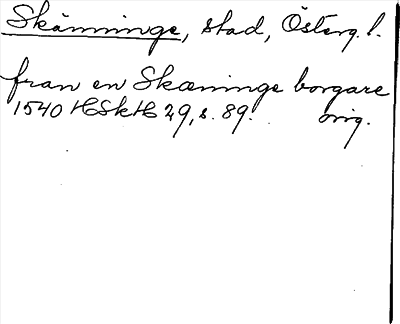 Skänninge, stad, Österg. l.
fran en Skæninge borgare
1540 HSkH 29, s. 89. orig.